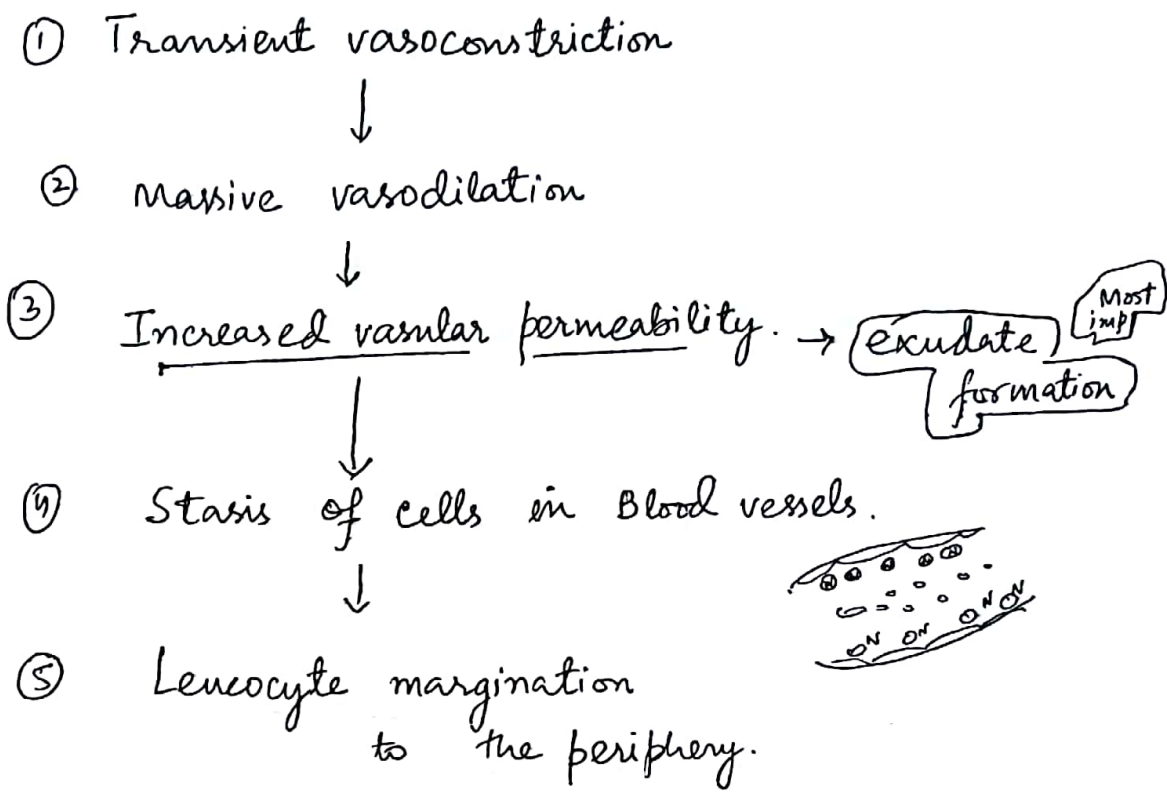 ① Transient vasoconstriction
② Massive vasodilation
③ Increased vasular permeability. → exudate formation Most imp
④ Stasis of cells in Blood vessels.
N N N N
⑤ Leucocyte margination
to the periphery.